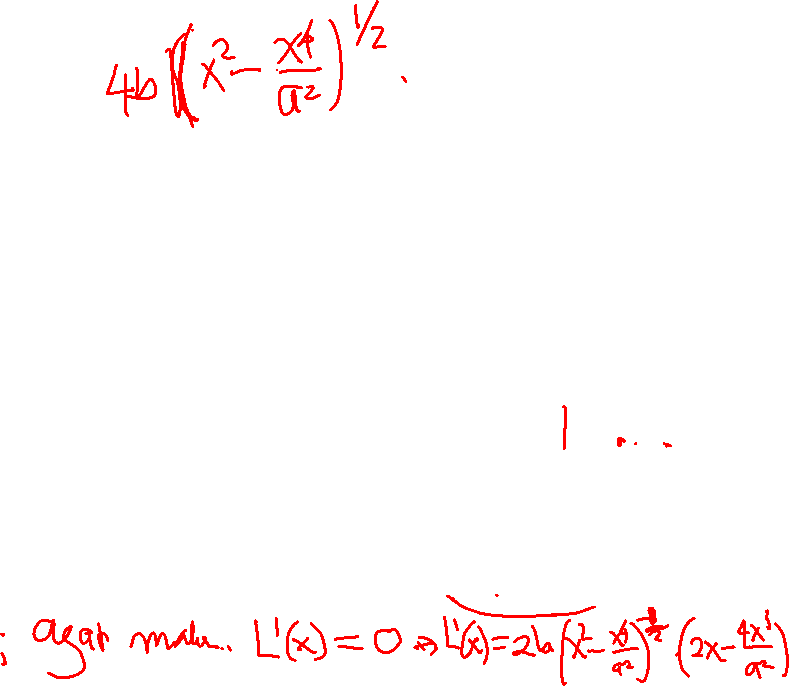 4b (x² - x⁴/a²)^1/2 .
1 ...
; agar L'(x) = 0 ⇒ L'(x) = 2b (x² - x⁴/a²)^-1/2 (2x - 4x³/a²)